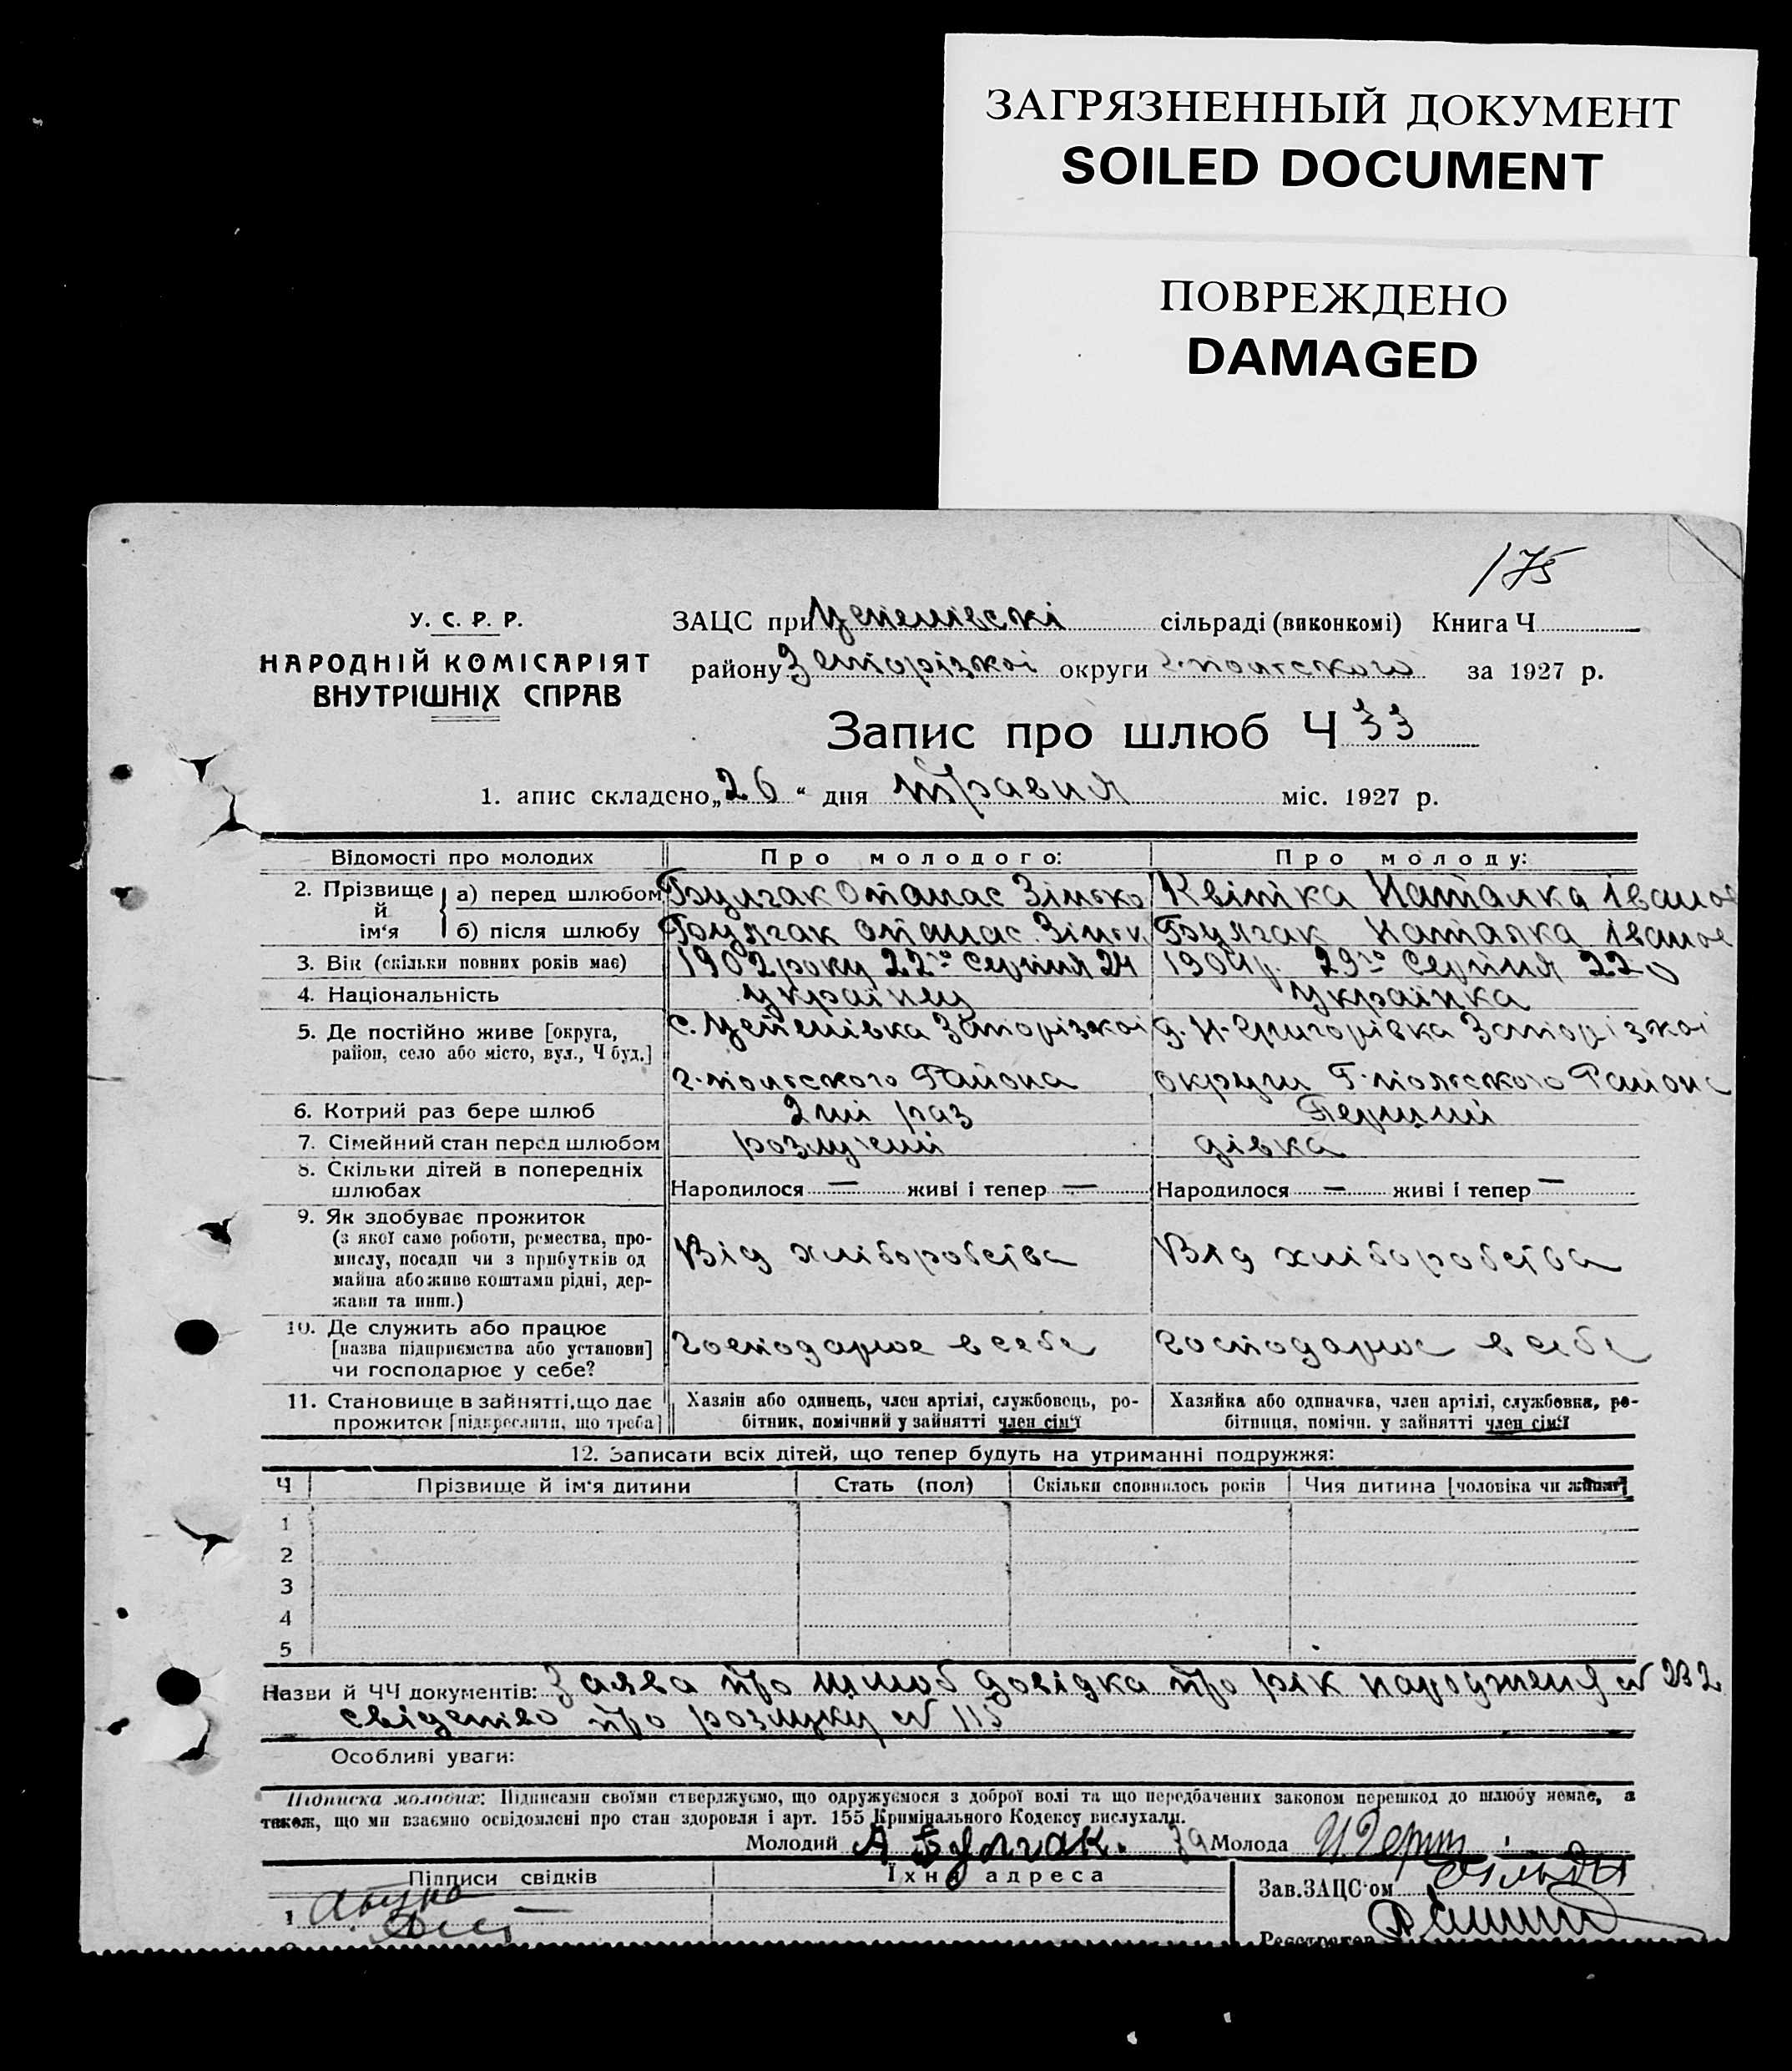 ЗАГРЯЗНЕННЫЙ ДОКУМЕНТ
SOILED DOCUMENT
ПОВРЕЖДЕНО
DAMAGED
175
У. С. Р. Р.
НАРОДНІЙ КОМІСАРІЯТ
ВНУТРІШНІХ СПРАВ
ЗАЦС при сільраді (виконкомі) Книга Ч
району Запорізкоі округи г-полського за 1927 р.
Запис про шлюб Ч 33
1. апис складено „26“ дня травня міс. 1927 р.
Відомості про молодих Про молодого: Про молоду:
2. Прізвище й ім‘я
а) перед шлюбом Булгак Опанас Зінов Квітка Наталка Іванов
б) після шлюбу Булгак Опанас Зінов. Булгак Наталка Іванов
3. Вік (скільки повних років має) 1902 року 22го серпня 24 1904 р. 29го Серпня 22
4. Національність українец українка
5. Де постійно живе [округа, район, село або місто, вул., Ч буд.]
Запорізкоі г-полського Района
Григорівка Запорізкоі округи Г-полского Района
6. Котрий раз бере шлюб 2ий раз Перший
7. Сімейний стан перед шлюбом розлучений дівка
8. Скільки дітей в попередніх шлюбах
Народилося — живі і тепер — Народилося — живі і тепер —
9. Як здобуває прожиток
(з якої саме роботи, ремества, про-
мислу, посади чи з прибутків од
майна або живе коштами рідні, дер-
жави та инш.)
Від хліборобства Від хліборобства
10. Де служить або працює
[назва підприємства або установи]
чи господарює у себе?
Господарює в себе Господарює в себе
11. Становище в зайнятті, що дає
прожиток [підкреслити, що треба]
Хазяїн або одинець, член артілі, службовець, ро-
бітник, помічний у зайнятті член сім‘ї
Хазяйка або одиначка, член артілі, службовка, ро-
бітниця, помічн. у зайнятті член сім‘ї
12. Записати всіх дітей, що тепер будуть на утриманні подружжя:
Ч Прізвище й ім‘я дитини Стать (пол) Скільки сповнилось років Чия дитина [чоловіка чи жінки]
1
2
3
4
5
Назви й ЧЧ документів: Заява про шлюб довідка про рік народженя № 232
свідетво про розлуку № 115
Особливі уваги:
Підписка молодих: Підписами своїми стверджуємо, що одружуємося з доброї волі та що передбачених законом перешкод до шлюбу немає, а
також, що ми взаємно освідомлені про стан здоровля і арт. 155 Кримінального Кодексу вислухали.
Молодий А Булгак. За Молода
Підписи свідків Їхня адреса
Зав.ЗАЦС‘ом
1
Реєстратор